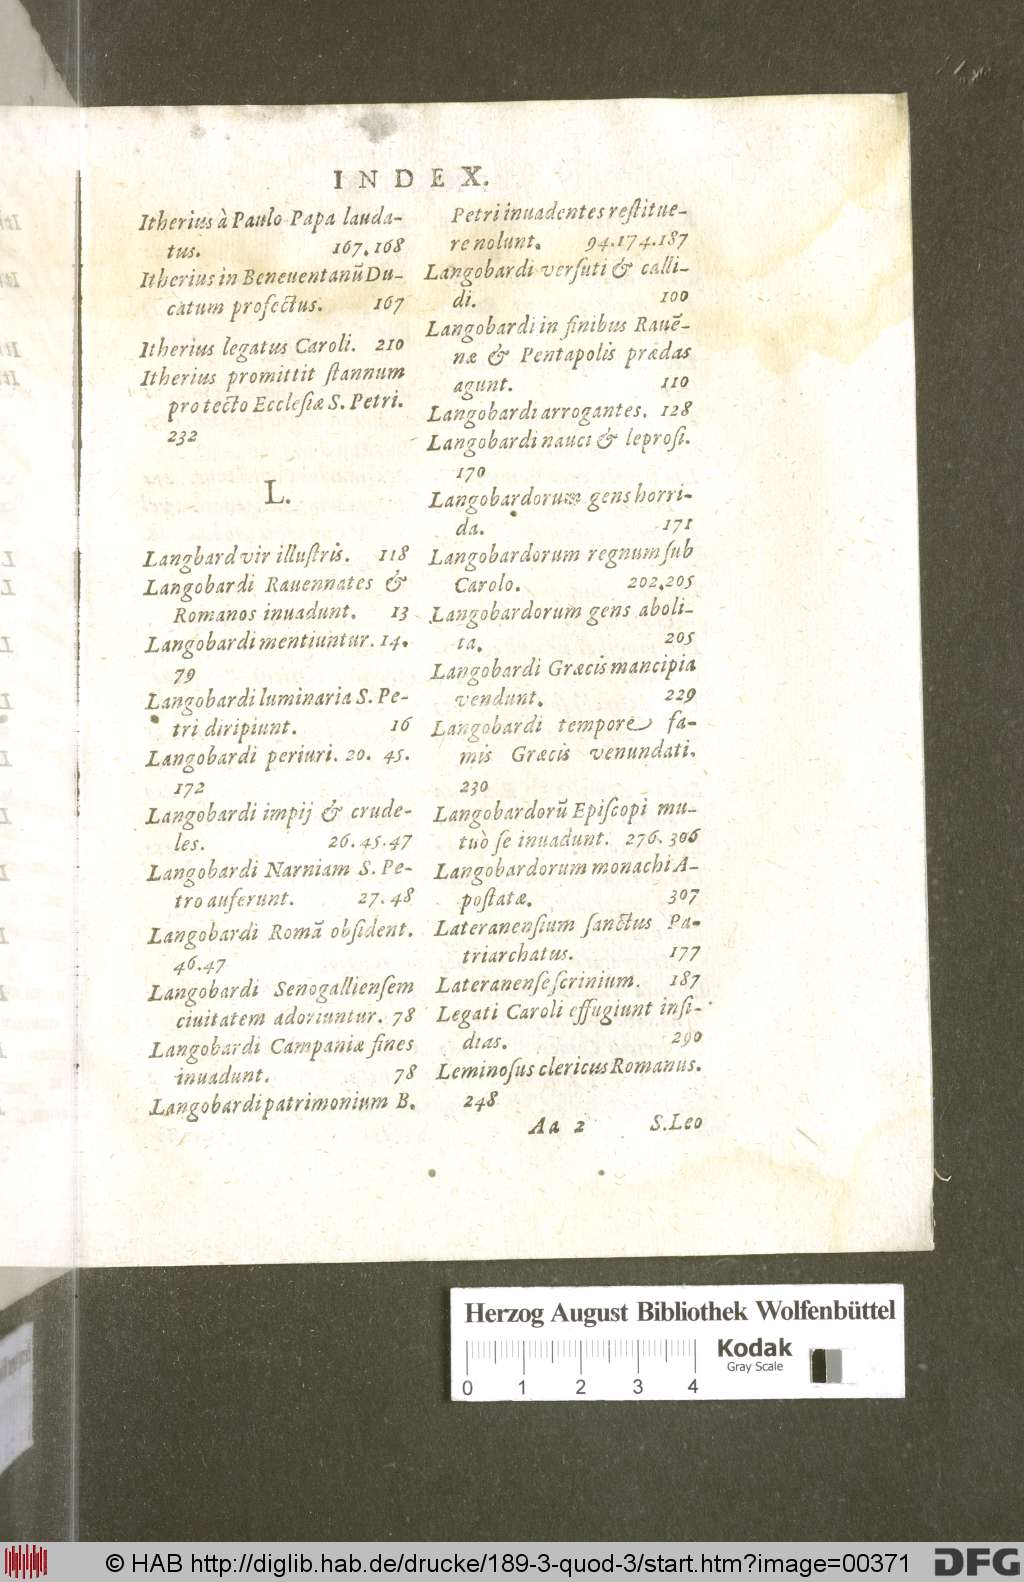 INDEX.
Itherius à Paulo Papa lauda-
tus. 167.168
Itherius in Beneuentanū Du-
catum profectus. 167
Itherius legatus Caroli. 210
Itherius promittit ſtannum
pro tecto Eccleſiæ S. Petri.
232
L.
Langbard vir illuſtris. 118
Langobardi Rauennates &
Romanos inuadunt. 13
Langobardi mentiuntur. 14.
79
Langobardi luminaria S. Pe-
tri diripiunt. 16
Langobardi periuri. 20. 45.
172
Langobardi impij & crude-
les. 26.45.47
Langobardi Narniam S. Pe-
tro auferunt. 27.48
Langobardi Romā obſident.
46.47
Langobardi Senogallienſem
ciuitatem adoriuntur. 78
Langobardi Campaniæ fines
inuadunt. 78
Langobardi patrimonium B.
Petri inuadentes reſtitue-
re nolunt. 94.174.187
Langobardi verſuti & calli-
di. 100
Langobardi in finibus Rauē-
næ & Pentapolis prædas
agunt. 110
Langobardi arrogantes. 128
Langobardi nauci & leproſi.
170
Langobardorum gens horri-
da. 171
Langobardorum regnum ſub
Carolo. 202.205
Langobardorum gens aboli-
ta. 205
Langobardi Græcis mancipia
vendunt. 229
Langobardi tempore fa-
mis Græcis venundati.
230
Langobardorū Epiſcopi mu-
tuò ſe inuadunt. 276. 306
Langobardorum monachi A-
poſtatæ. 307
Lateranenſium ſanctus Pa-
triarchatus. 177
Lateranenſe ſcrinium. 187
Legati Caroli effugiunt inſi-
dias. 290
Leminoſus clericus Romanus.
248
Aa 2 S. Leo
Herzog August Bibliothek Wolfenbüttel
Kodak
Gray Scale
0 1 2 3 4
© HAB http://diglib.hab.de/drucke/189-3-quod-3/start.htm?image=00371
DFG